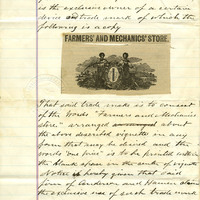 is the exclusive owner of a certain
device and trade mark of which the
following is a copy
"FARMERS' AND MECHANICS' STORE."
That said trade mark is to consist
of the Words "Farmers and Mechanics
Store." arranged as arranged about
the above described vignette in any
form that may be desired and the
words "our firm" is to be printed within
the blank space in the centre of vignette
Notice is hereby given that said
firm of Anderson and Hanson claim
the exclusive use of such trade mark